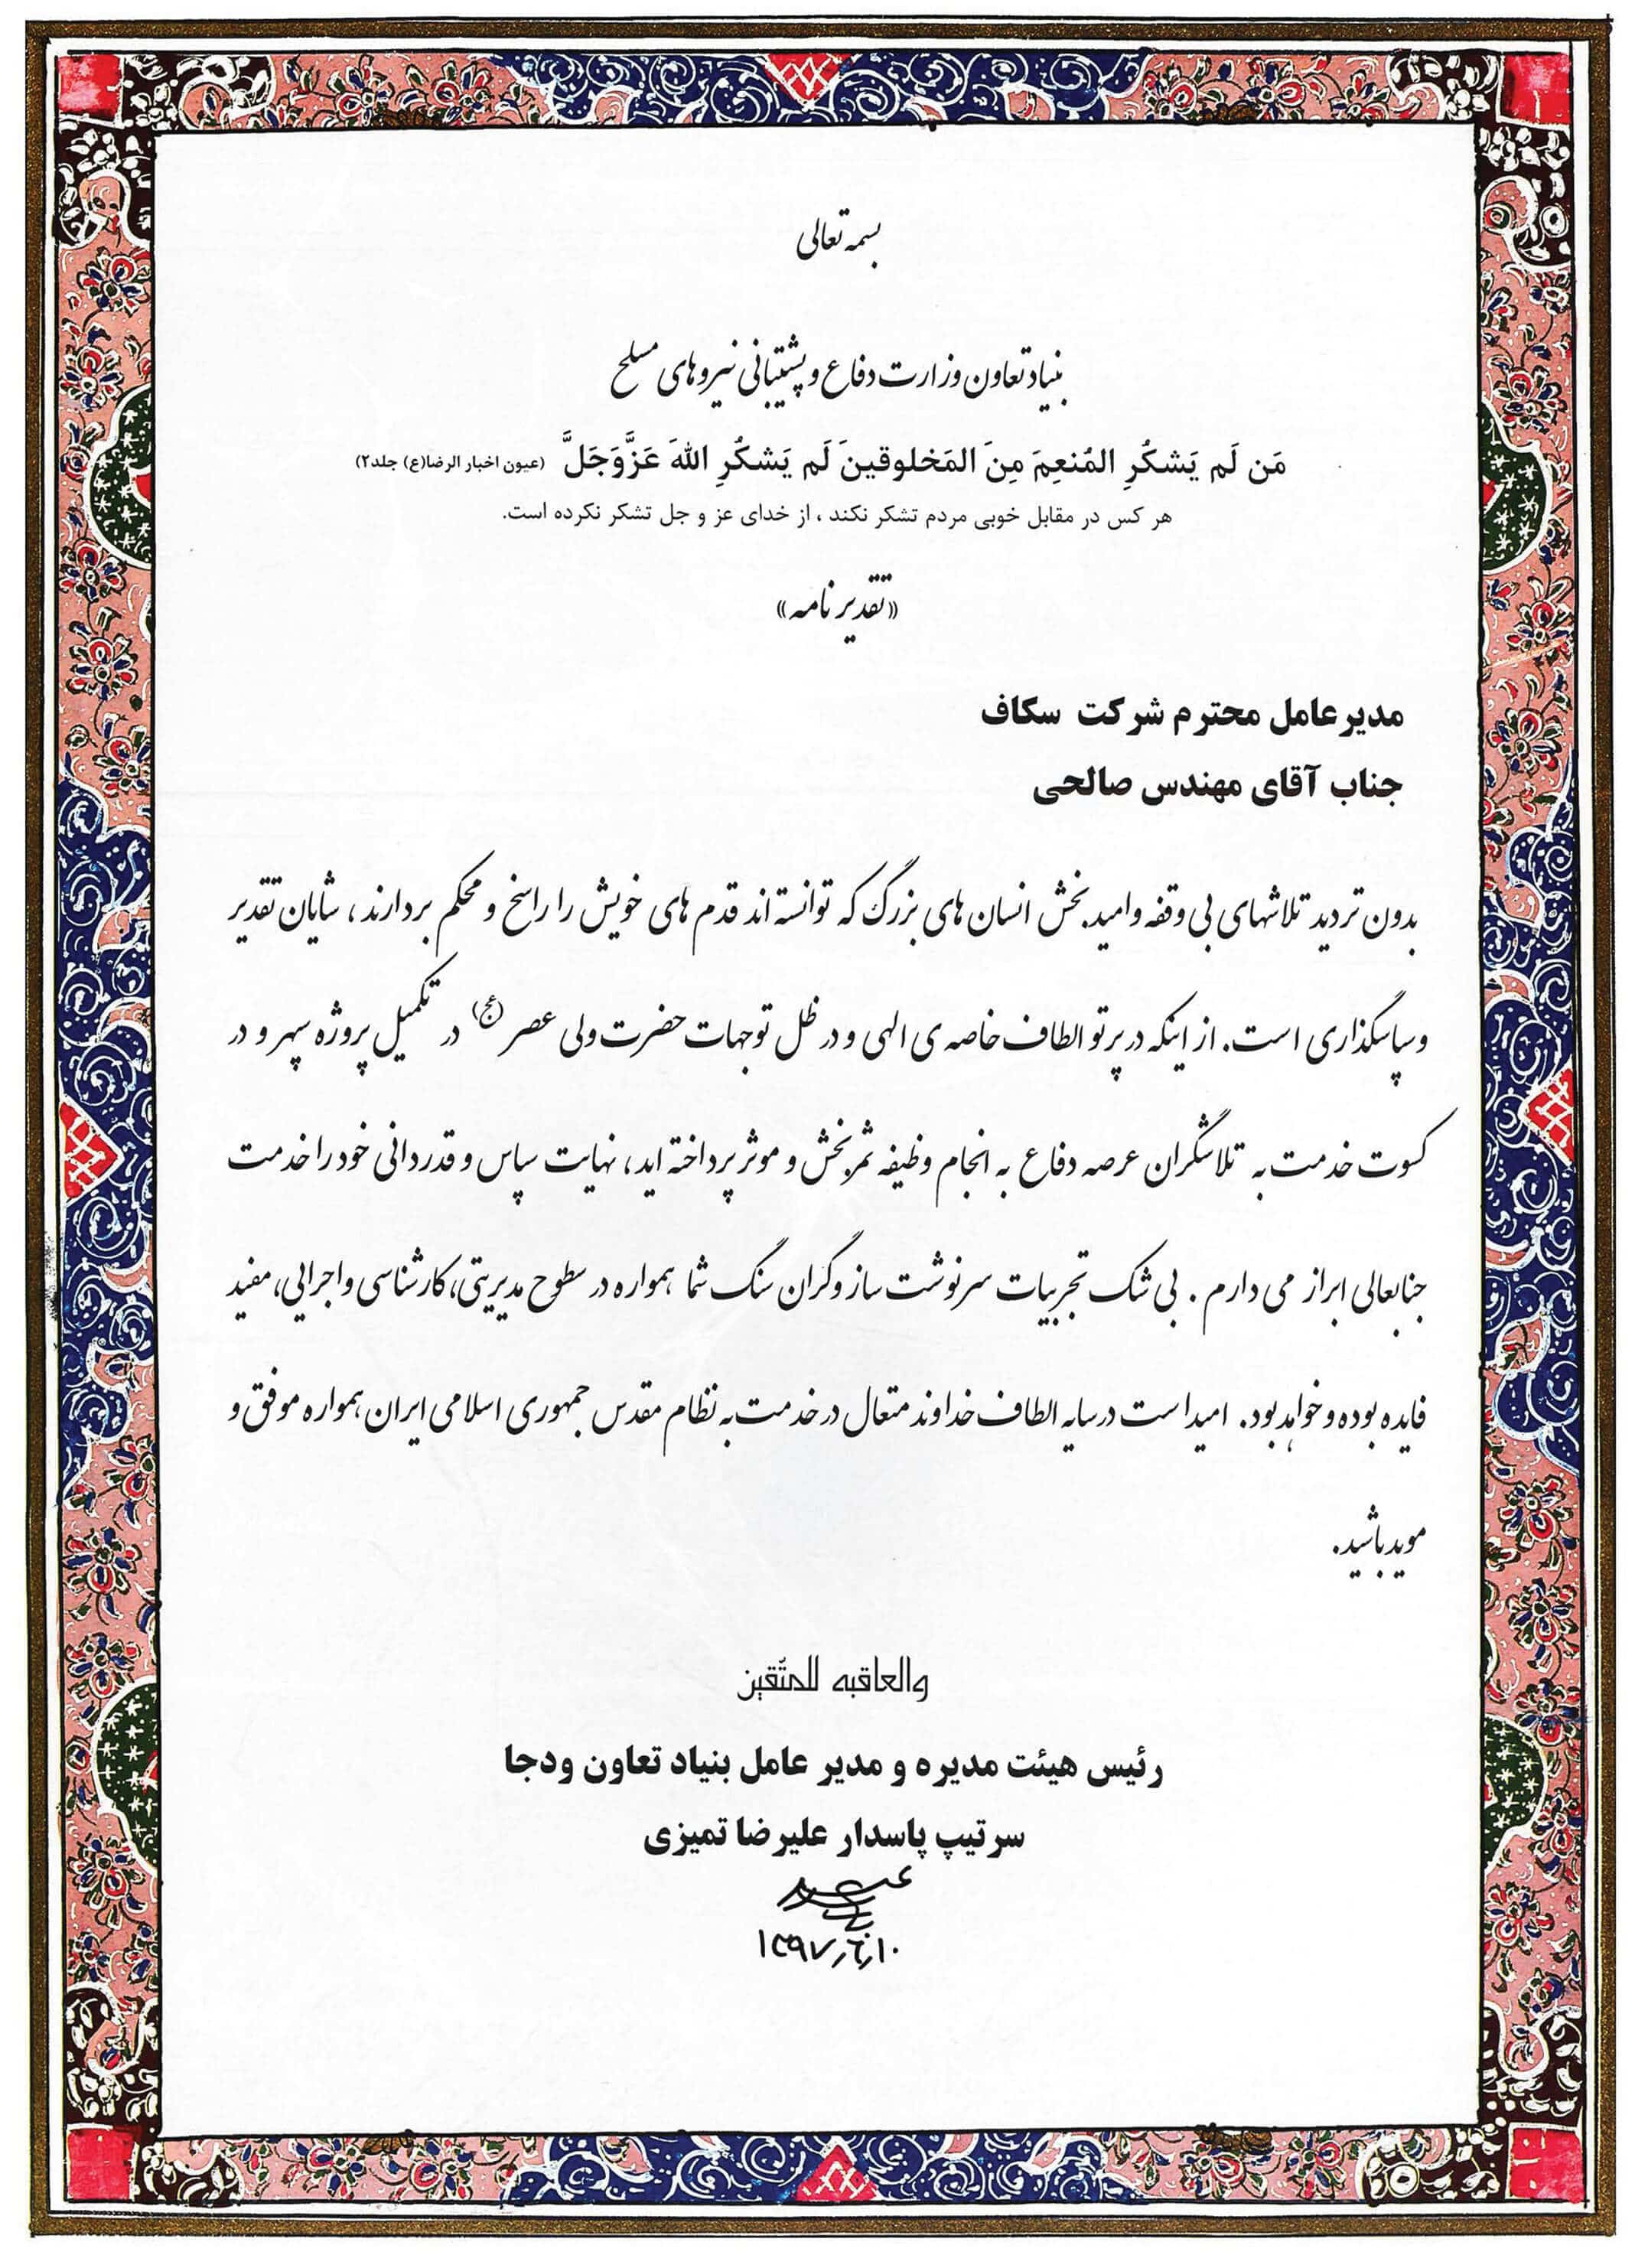 بسمه تعالی
بنیاد تعاون وزارت دفاع و پشتیبانی نیروهای مسلح
مَن لَم یَشکُرِ المُنعِمَ مِنَ المَخلوقینَ لَم یَشکُرِ اللهَ عَزَّوَجَلَّ (عیون اخبار الرضا(ع) جلد۲)
هر کس در مقابل خوبی مردم تشکر نکند ، از خدای عز و جل تشکر نکرده است.
«تقدیر نامه»
مدیرعامل محترم شرکت سکاف
جناب آقای مهندس صالحی
بدون تردید تلاشهای بی وقفه و امید بخش انسان های بزرگ که توانسته اند قدم های خویش را راسخ و محکم بردارند ، شایان تقدیر
و سپاسگذاری است. از اینکه در پرتو الطاف خاصه ی الهی و در ظل توجهات حضرت ولی عصر (عج) در تکمیل پروژه سپهر و در
کسوت خدمت به تلاشگران عرصه دفاع به انجام وظیفه ثمربخش و موثر پرداخته اید ، نهایت سپاس و قدردانی خود را خدمت
جنابعالی ابراز می دارم . بی شک تجربیات سرنوشت ساز و گران سنگ شما همواره در سطوح مدیریتی، کارشناسی و اجرایی، مفید
فایده بوده و خواهد بود. امید است در سایه الطاف خداوند متعال در خدمت به نظام مقدس جمهوری اسلامی ایران همواره موفق و
موید باشید.
والعاقبه للمتّقین
رئیس هیئت مدیره و مدیر عامل بنیاد تعاون ودجا
سرتیپ پاسدار علیرضا تمیزی
۱۳۹۷٫۶٫۱۰